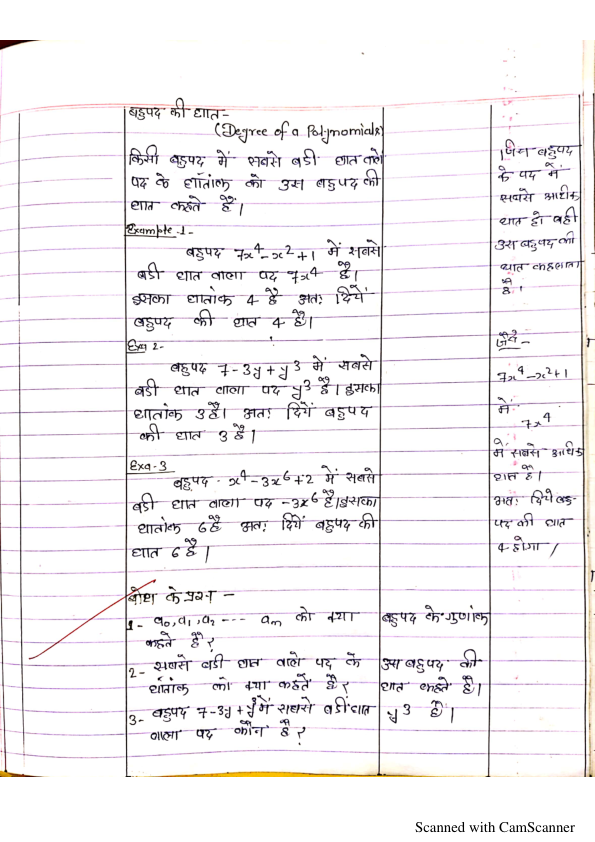 बहुपद की घात-
(Degree of a Polynomials)
किसी बहुपद में सबसे बडी घात वाले
पद के घातांक को उस बहुपद की
घात कहते हैं।
Example-1-
बहुपद 7x⁴-x²+1 में सबसे
बडी घात वाला पद 7x⁴ है।
इसका घातांक 4 है अतः दिये
बहुपद की घात 4 है।
Exa 2-
बहुपद 7-3y+y³ में सबसे
बडी घात वाला पद y³ है। इसका
घातांक 3 है। अतः दिये बहुपद
की घात 3 है।
Exa-3
बहुपद x⁴-3x⁶+2 में सबसे
बडी घात वाला पद -3x⁶ है। इसका
घातांक 6 है अतः दिये बहुपद की
घात 6 है।
बोध के प्रश्न -
1- a₀, a₁, a₂ --- aₘ को क्या
कहते है?
2- सबसे बडी घात वाले पद के
घातांक को क्या कहते है?
3- बहुपद 7-3y+y³ में सबसे बडी घात
वाला पद कौन है?
बहुपद के गुणांक
उस बहुपद की
घात कहते है।
y³ है।
जिस बहुपद
के पद में
सबसे अधिक
घात हो वही
उस बहुपद की
घात कहलाता
है।
जैसे -
7x⁴-x²+1
में
7x⁴
में सबसे अधिक
घात है।
अतः दिये बहु-
पद की घात
4 होगा।
Scanned with CamScanner